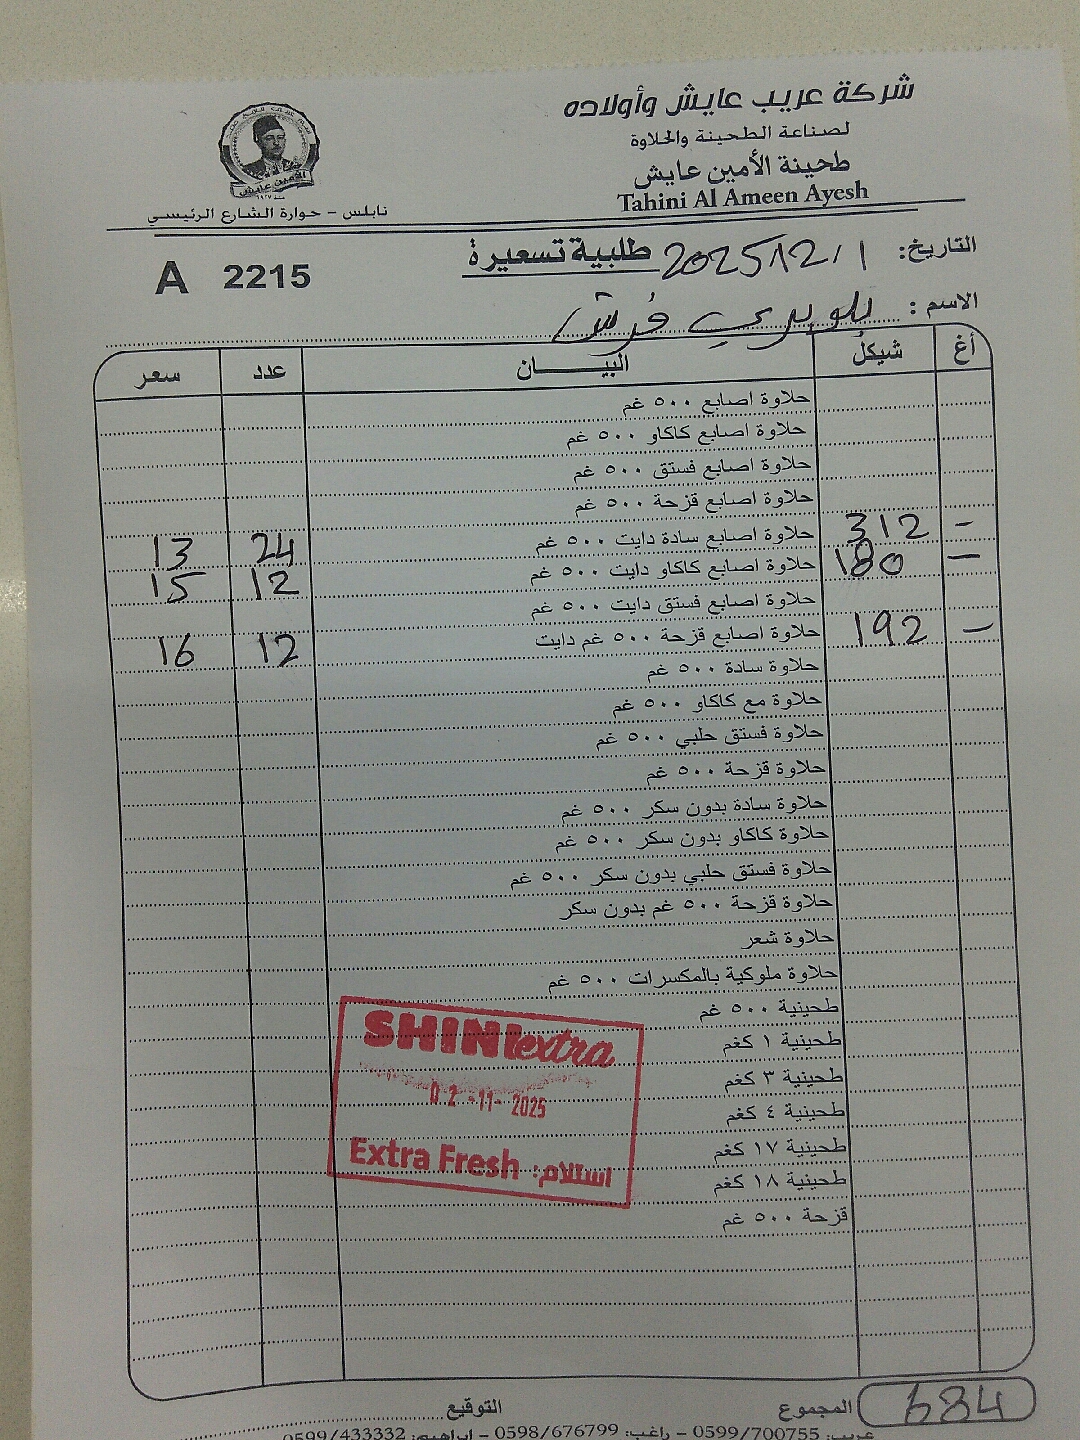 شركة عريب عايش وأولاده
لصناعة الطحينة والحلاوة
طحينة الأمين عايش
Tahini Al Ameen Ayesh
الأمين عايش
نابلس - حوارة الشارع الرئيسي
التاريخ: 2025/12/1
طلبية تسعيرة
A 2215
الاسم :
أغ شيكل البيـــــان عدد سعر
حلاوة اصابع ٥٠٠ غم
حلاوة اصابع كاكاو ٥٠٠ غم
حلاوة اصابع فستق ٥٠٠ غم
حلاوة اصابع قزحة ٥٠٠ غم
- 312 حلاوة اصابع سادة دايت ٥٠٠ غم 24 13
- 180 حلاوة اصابع كاكاو دايت ٥٠٠ غم 12 15
حلاوة اصابع فستق دايت ٥٠٠ غم
- 192 حلاوة اصابع قزحة ٥٠٠ غم دايت 12 16
حلاوة سادة ٥٠٠ غم
حلاوة مع كاكاو ٥٠٠ غم
حلاوة فستق حلبي ٥٠٠ غم
حلاوة قزحة ٥٠٠ غم
حلاوة سادة بدون سكر ٥٠٠ غم
حلاوة كاكاو بدون سكر ٥٠٠ غم
حلاوة فستق حلبي بدون سكر ٥٠٠ غم
حلاوة قزحة ٥٠٠ غم بدون سكر
حلاوة شعر
حلاوة ملوكية بالمكسرات ٥٠٠ غم
طحينية ٥٠٠ غم
طحينية ١ كغم
طحينية ٣ كغم
طحينية ٤ كغم
طحينية ١٧ كغم
طحينية ١٨ كغم
قزحة ٥٠٠ غم
SHINI extra
02 -11- 2025
Extra Fresh استلام:
684 المجموع التوقيع
عريب: 0599/700755 - راغب: 0598/676799 - ابراهيم: 0599/433332